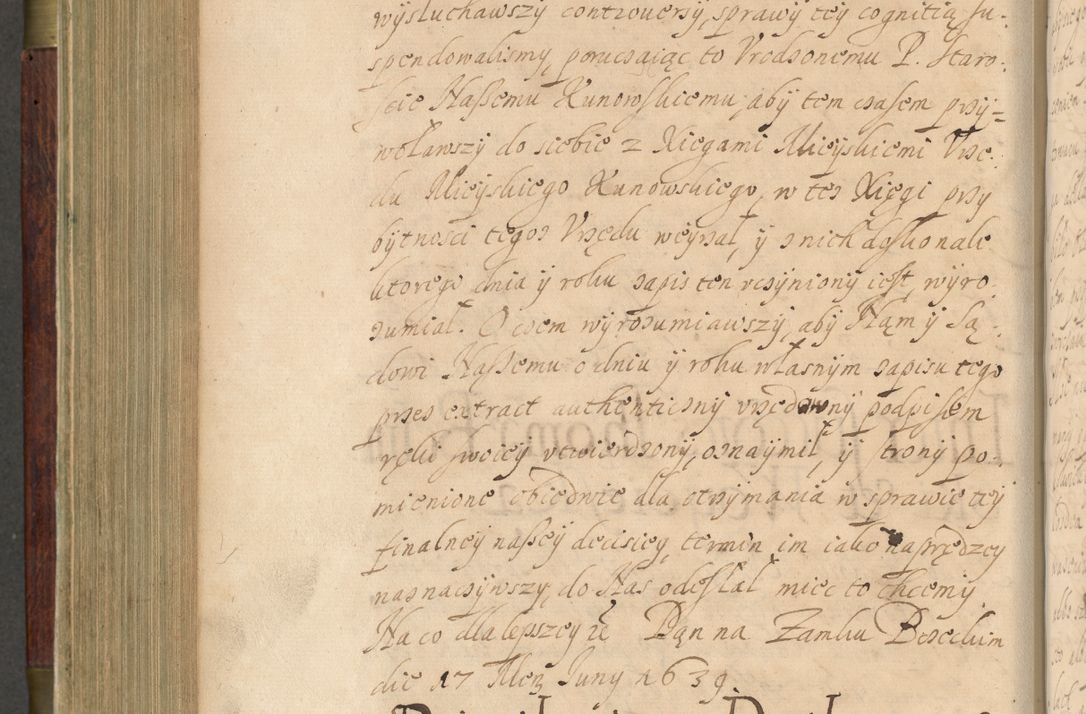 wysłuchawszy controuersy, sprawy tey cognitią su-
spendowalismy, poruczaiąc to Vrodzonemu P. Staro-
scie Naszemu Kunowskiemu, aby tem czasem przy=
woławszy do siebie z Xiegami Mieyskiemi Vrze-
du Mieyskiego Kunowskiego, w tez Xięgi przy
bytnosci tegoz Vrzędu weyzal, y z nich doskonale
ktorego dnia y roku zapis ten vczyniony iest, wyro-
zumial. O czem wyrozumiawszy, aby Nąm y Są-
dowi Naszemu o dniu y roku własnym zapisu tego
przes extract authenticzny vrzędowny podpisem
ręki swoiey vtwierdzony, oznaymił, y strony po-
mienione obiedwie dla otrzymania w sprawie tey
finalney naszey decisiey, termin im iako naprędzey
naznaczywszy, do Nas odesłal, miec to chcemy.
Na co dla lepszey ię Dąn na Zamku Bodzechim
die 17 Men Juny 1639.